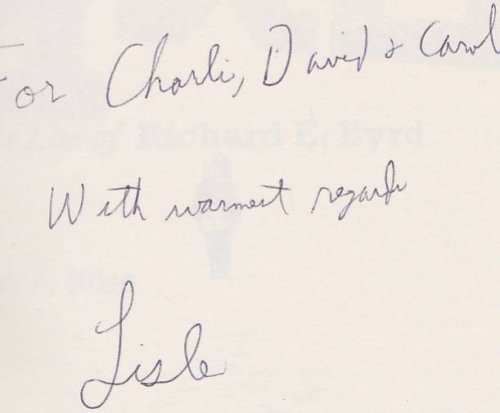 For Charli, David & Carol
Richard E. Byrd
With warmest regards
Lisle